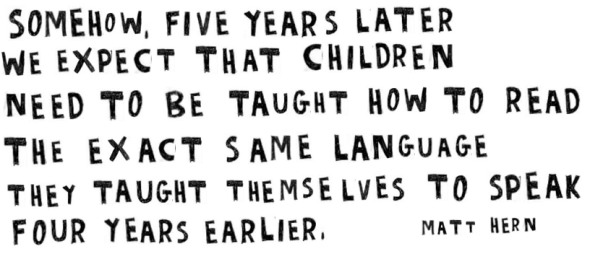 SOMEHOW, FIVE YEARS LATER
WE EXPECT THAT CHILDREN
NEED TO BE TAUGHT HOW TO READ
THE EXACT SAME LANGUAGE
THEY TAUGHT THEMSELVES TO SPEAK
FOUR YEARS EARLIER.
MATT HERN